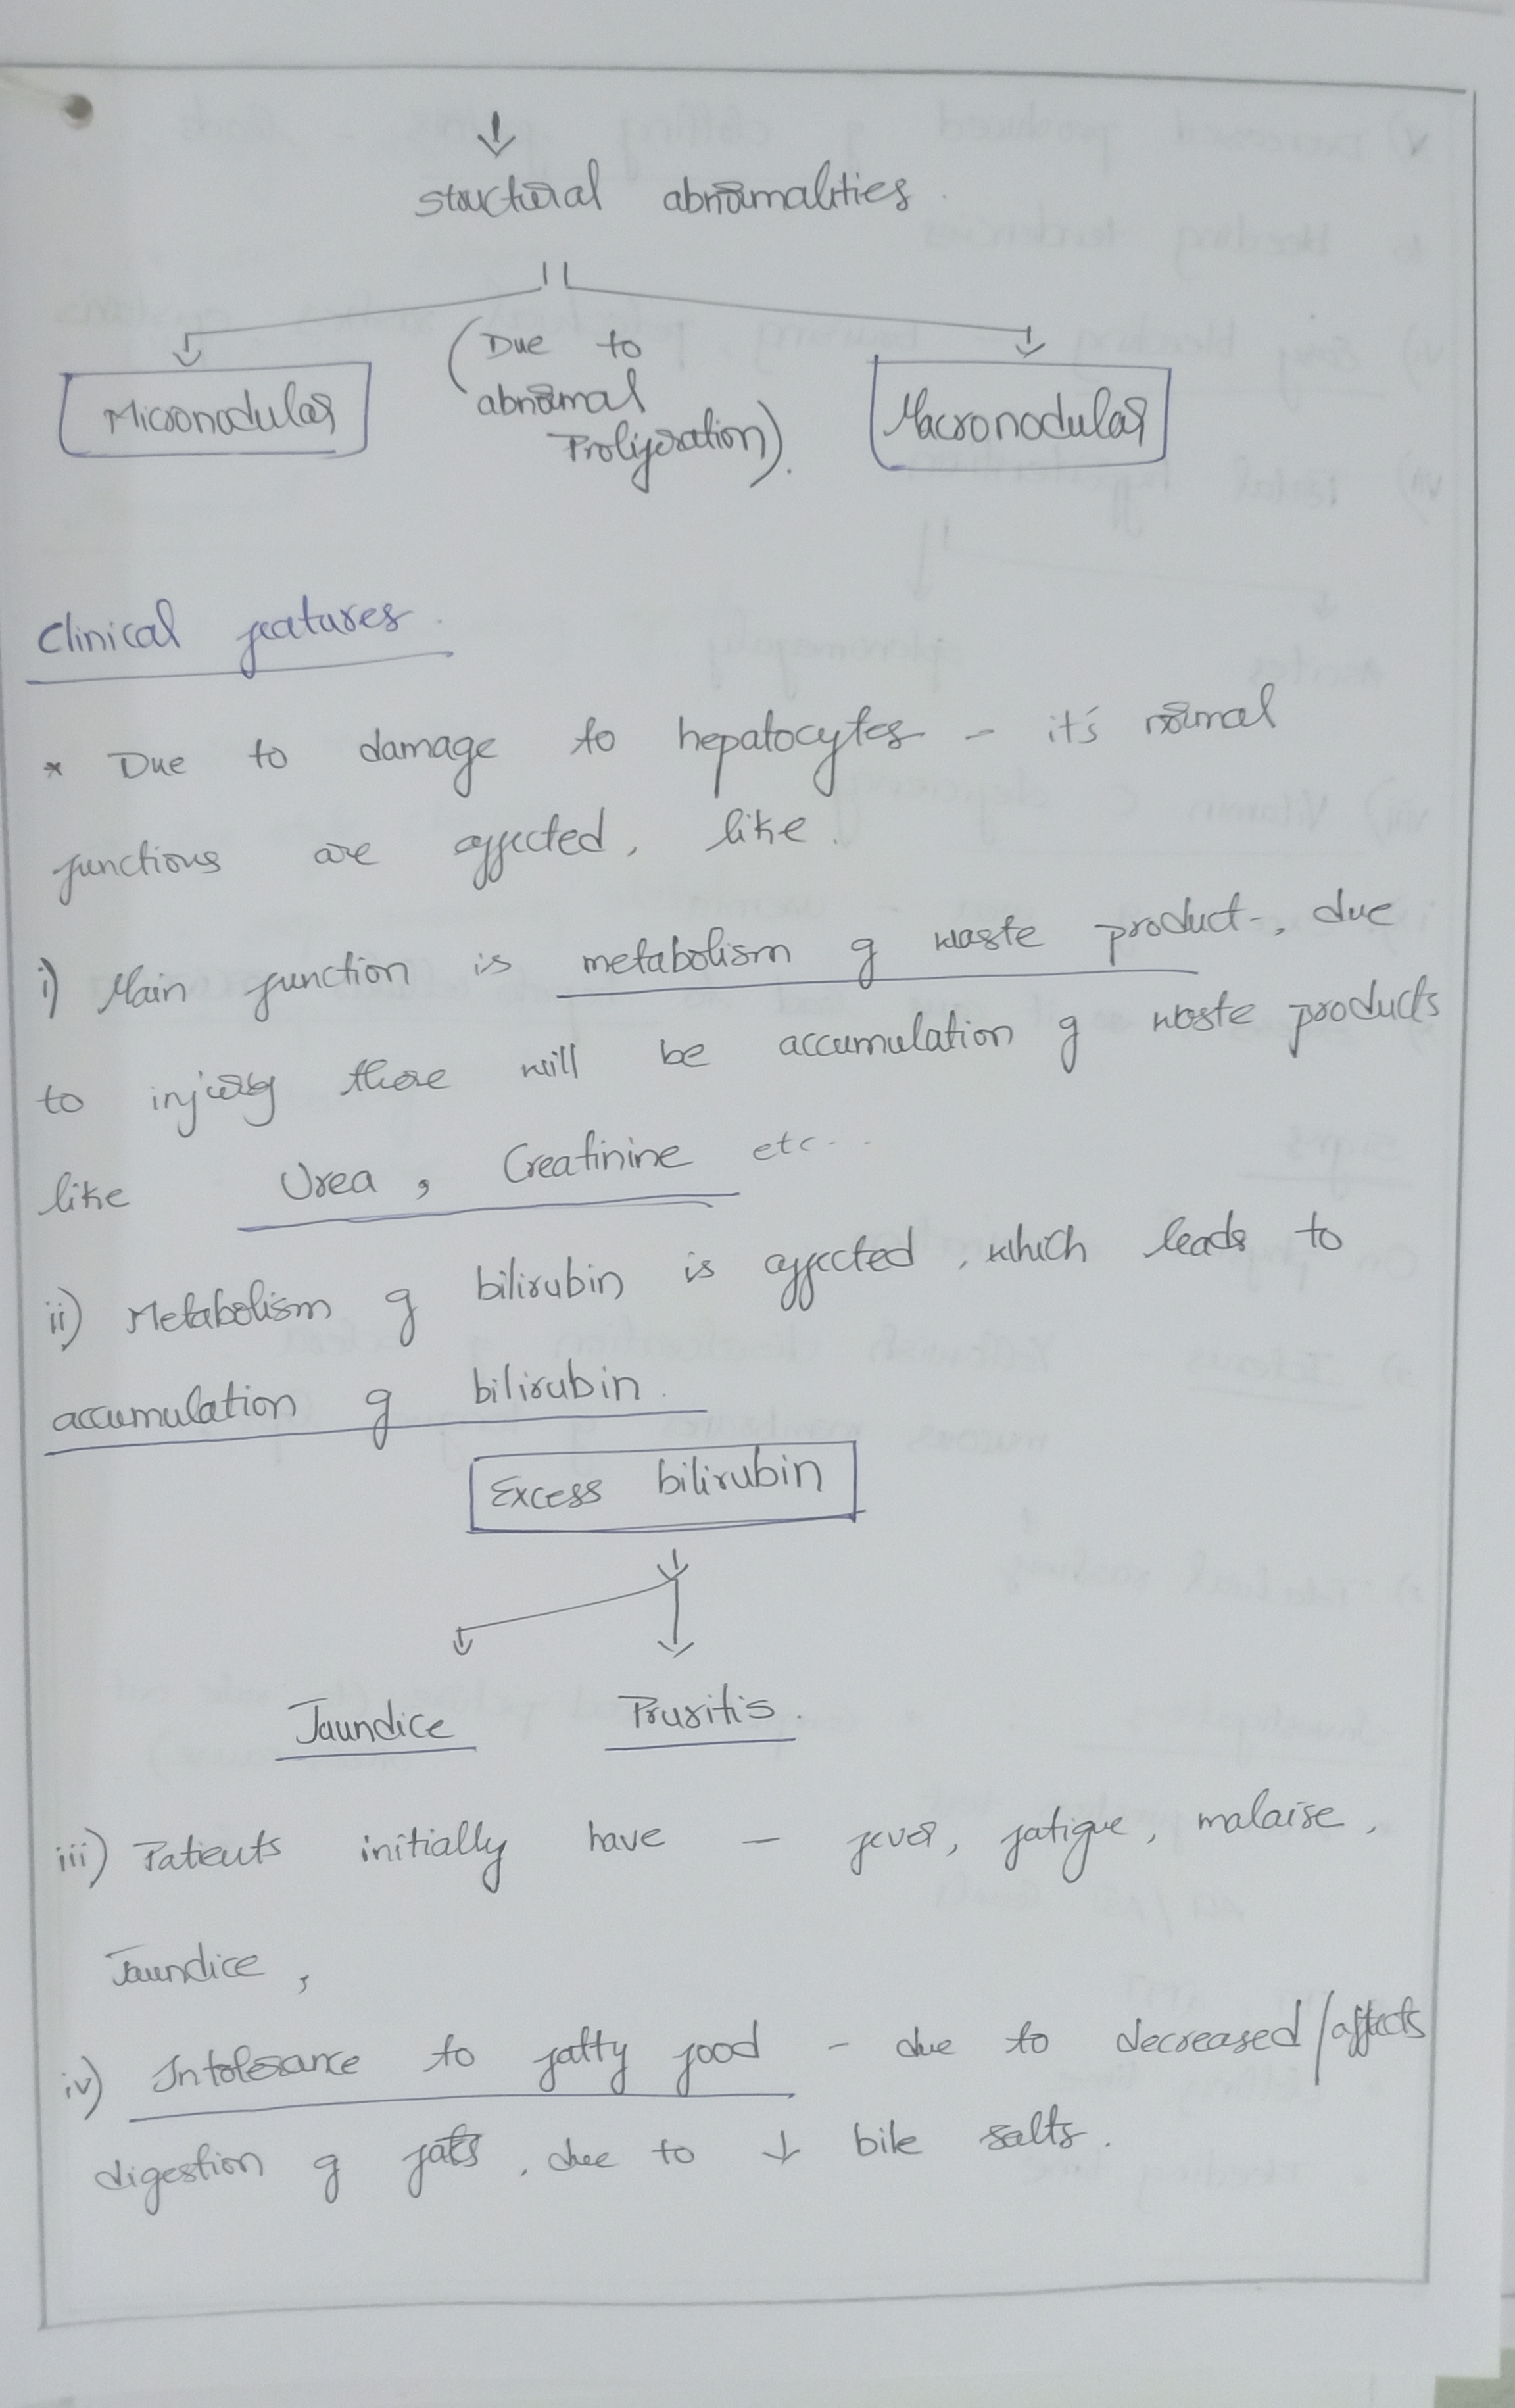 ↓
structural abnormalities.
Micronodular
(Due to
abnormal
Proliferation).
Macronodular
Clinical features.
* Due to damage to hepatocytes - it's normal
functions are affected, like.
i) Main function is metabolism of waste product, due
to injury there will be accumulation of waste products
like Urea, Creatinine etc...
ii) Metabolism of bilirubin is affected, which leads to
accumulation of bilirubin.
Excess bilirubin
Jaundice Pruritis.
iii) Patients initially have - fever, fatigue, malaise,
Jaundice,
iv) Intolerance to fatty food - due to decreased/affects
digestion of fats, due to ↓ bile salts.